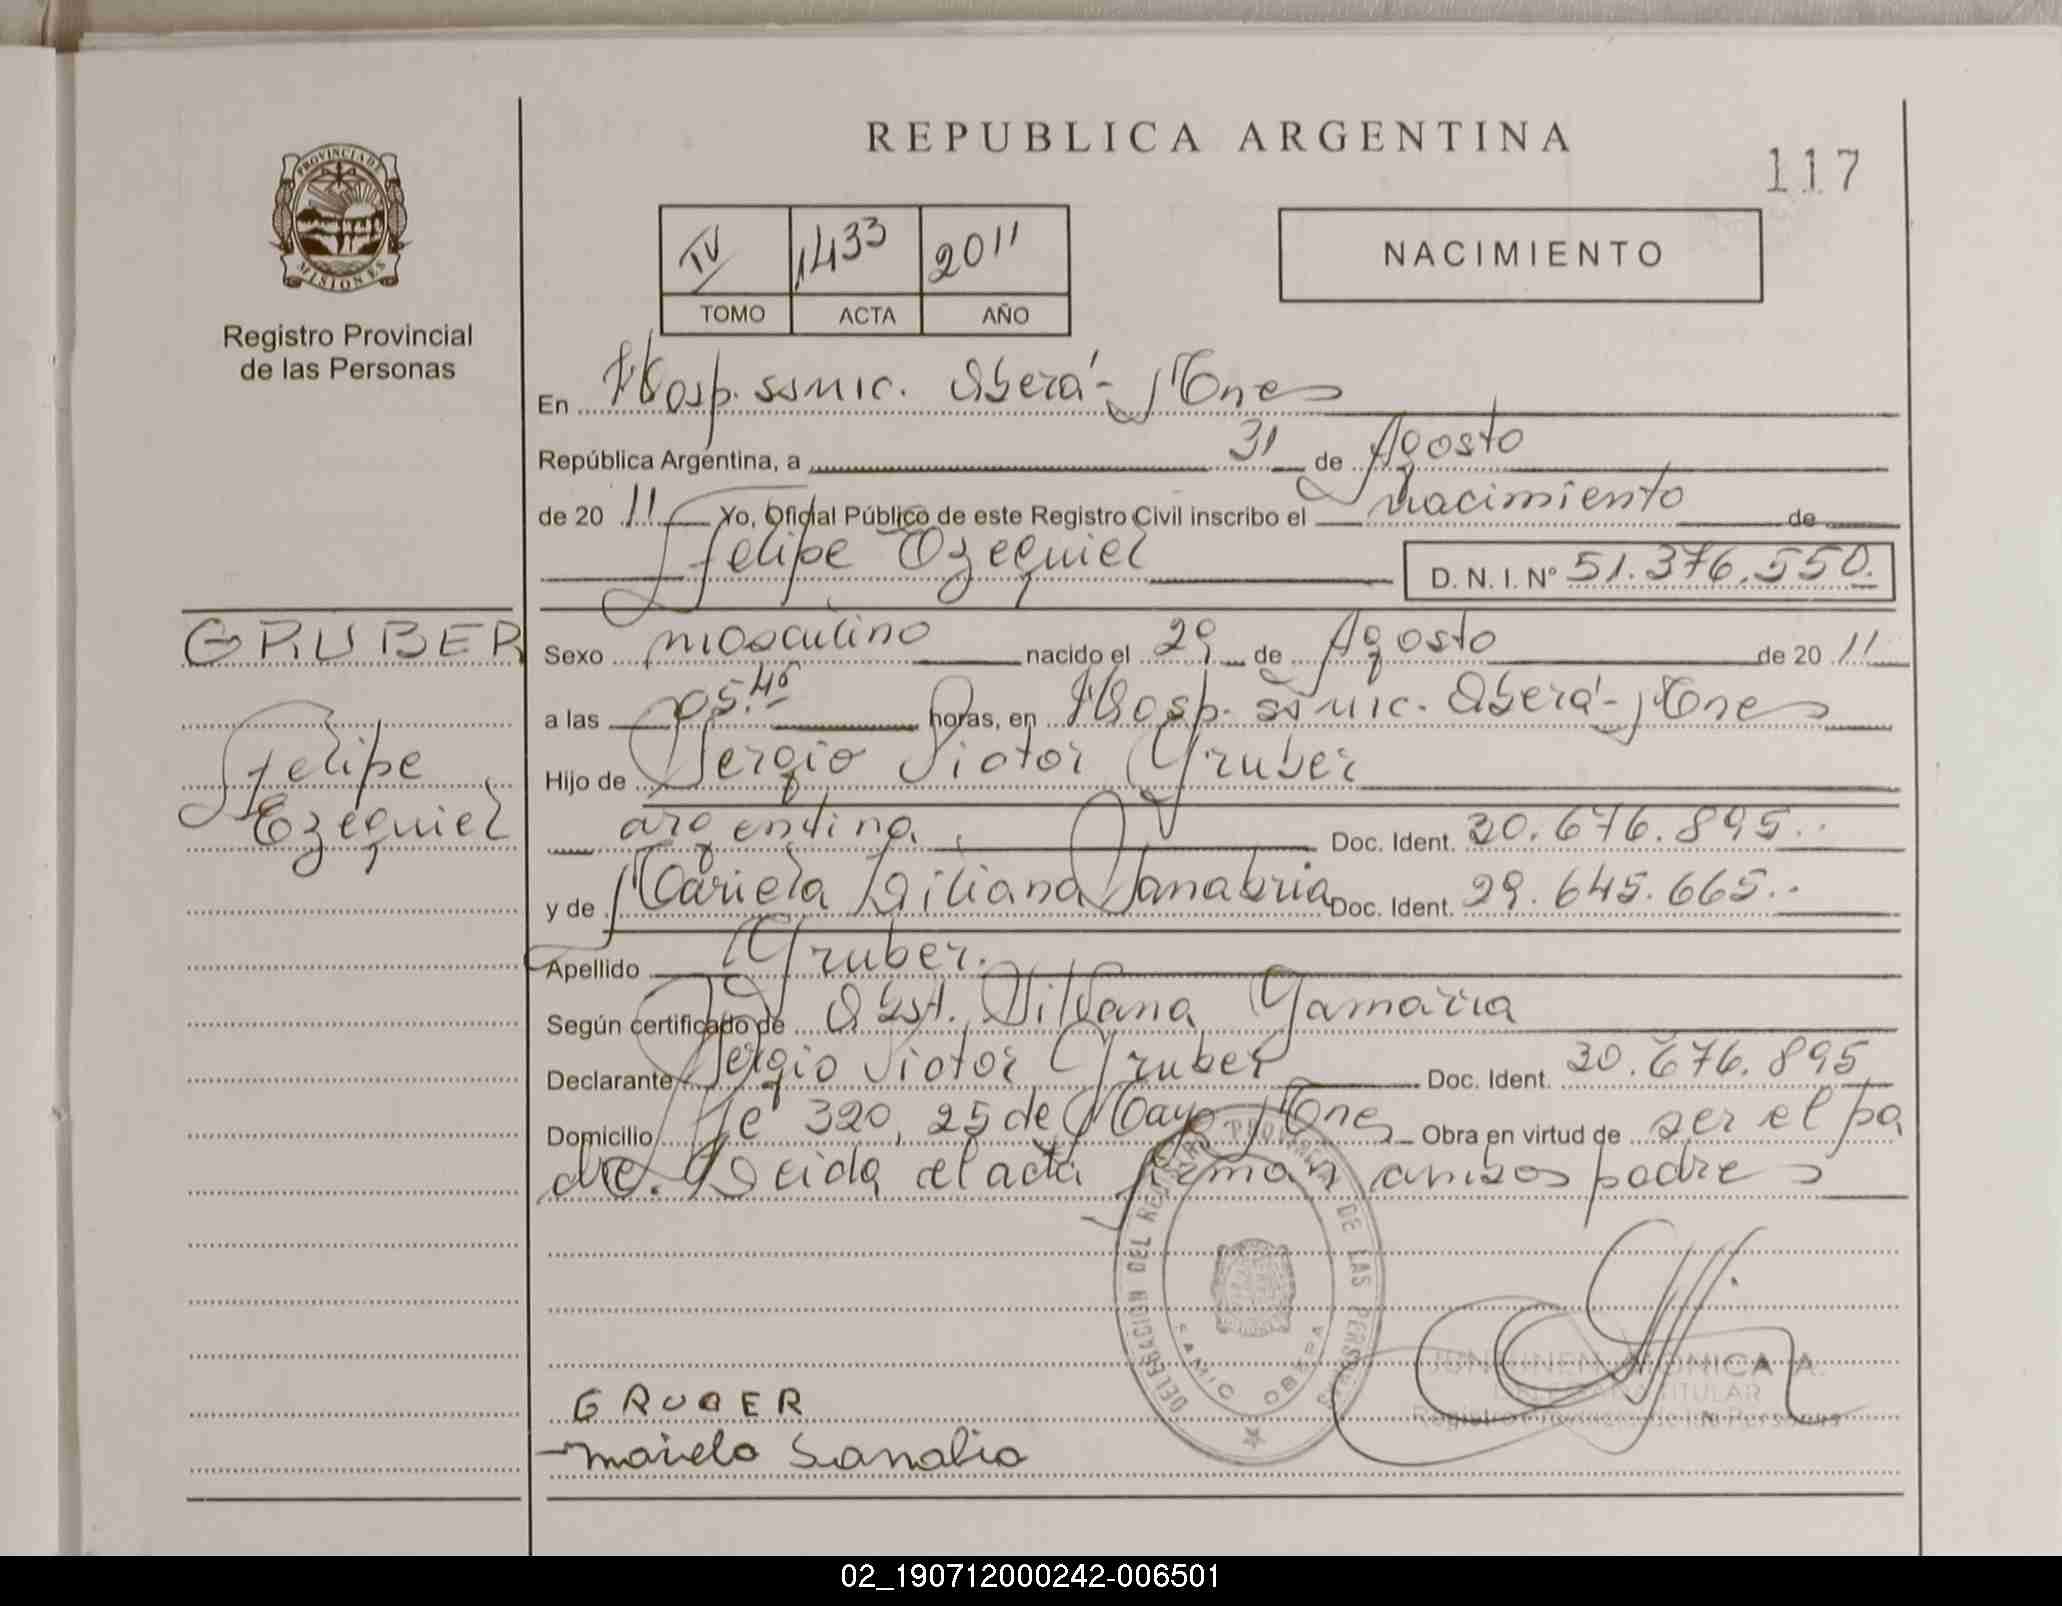 REPUBLICA ARGENTINA
117
PROVINCIA DE
MISIONES
Registro Provincial
de las Personas
IV 1433 2011
TOMO ACTA AÑO
NACIMIENTO
En Hosp. SSMIC. Oberá - Mnes
República Argentina, a 31 de Agosto
de 20 11 Yo, Oficial Público de este Registro Civil inscribo el nacimiento de
Felipe Ezequiel D.N.I. Nº 51.376.550.
GRUBER
Felipe
Ezequiel
Sexo masculino nacido el 29 de Agosto de 20 11
a las 05.45 horas, en Hosp. SSMIC. Oberá - Mnes
Hijo de Sergio Victor Gruber
argentina Doc. Ident. 30.676.895..
y de Mariela Liliana Sanabria Doc. Ident. 29.645.665..
Apellido Gruber.
Según certificado de Obst. Silvana Gamarra
Declarante Sergio Victor Gruber Doc. Ident. 30.676.895
Domicilio 320, 25 de Mayo Mnes Obra en virtud de ser el pa
dre. Leida el acta firman ambos padres
DELEGACION DEL REGISTRO PROVINCIAL DE LAS PERSONAS
SAMIC OBERA
MONICA A.
TITULAR
Registro Provincial de las Personas
GRUBER
mariela Sanabria
02_190712000242-006501